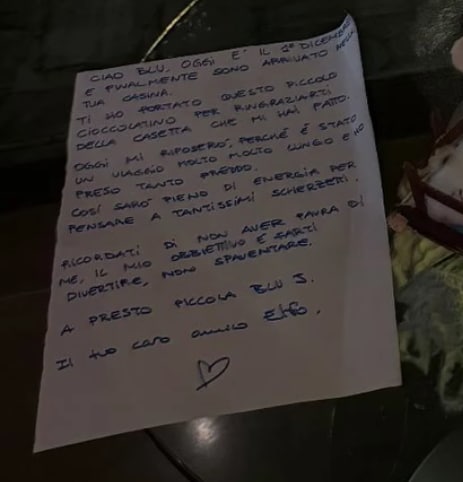 CIAO BLU, OGGI E' IL 1° DICEMBRE
E FINALMENTE SONO ARRIVATO NELLA
TUA CASINA.
TI HO PORTATO QUESTO PICCOLO
CIOCCOLATINO PER RINGRAZIARTI
DELLA CASETTA CHE MI HAI FATTO.
OGGI MI RIPOSERO', PERCHÉ È STATO
UN VIAGGIO MOLTO MOLTO LUNGO E HO
PRESO TANTO FREDDO.
COSÌ SARO' PIENO DI ENERGIA PER
PENSARE A TANTISSIMI SCHERZETTI.
RICORDATI DI NON AVER PAURA DI
ME, IL MIO OBBIETTIVO È FARTI
DIVERTIRE, NON SPAVENTARE.
A PRESTO PICCOLA BLU J.
Il tuo caro amico Elfo.